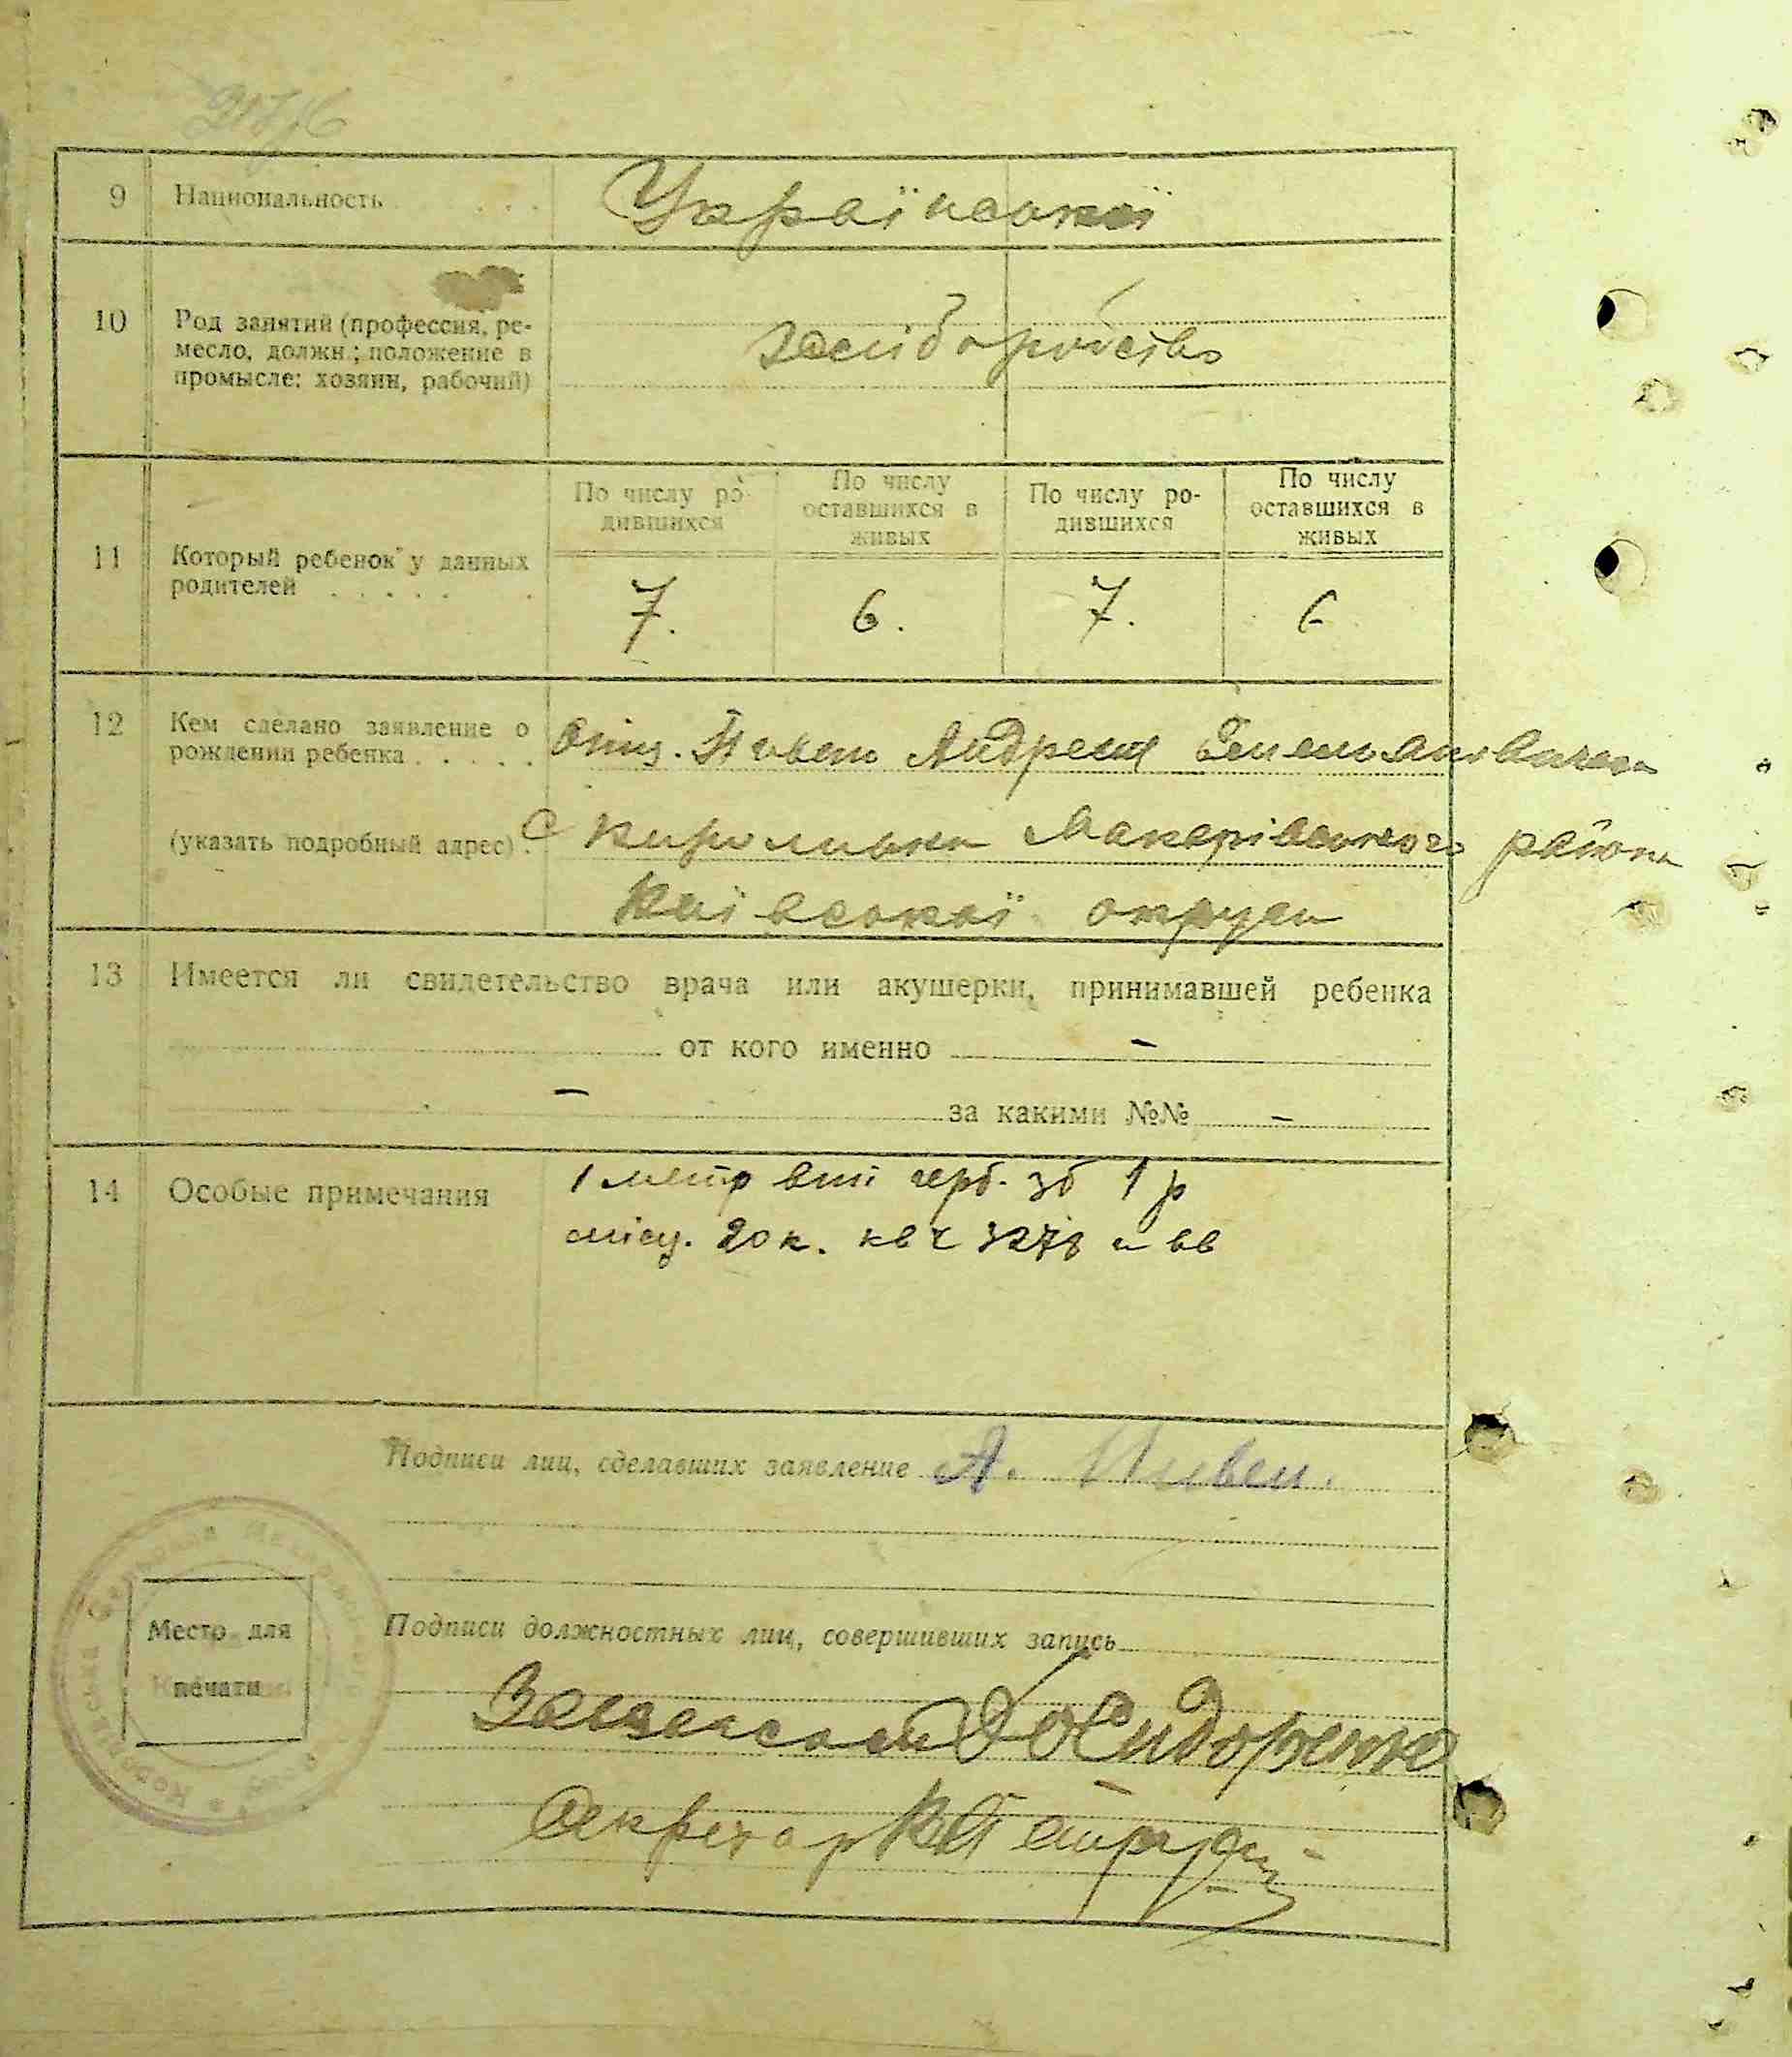 9 Национальность . . . Української
10 Род занятий (профессия, ре-
месло, должн.; положение в
промысле: хозяин, рабочий)
хліборобство
По числу ро-
дившихся
По числу
оставшихся в
живых
По числу ро-
дившихся
По числу
оставшихся в
живых
11 Который ребенок у данных
родителей . . . . . .
7. 6. 7. 6
12 Кем сделано заявление о
рождении ребенка . . . . .
Андреем Емельяновичем
(указать подробный адрес) .
С Королівки Макарівського района
Київської округи
13 Имеется ли свидетельство врача или акушерки, принимавшей ребенка
от кого именно –
– за какими №№ –
14 Особые примечания
1 метр герб. зб 1 р
місц. 20 к. кв ч 3278
Подписи лиц, сделавших заявление А. Пивен.
Место для
печати
Подписи должностных лиц, совершивших запись
Сидоренко
Секретар